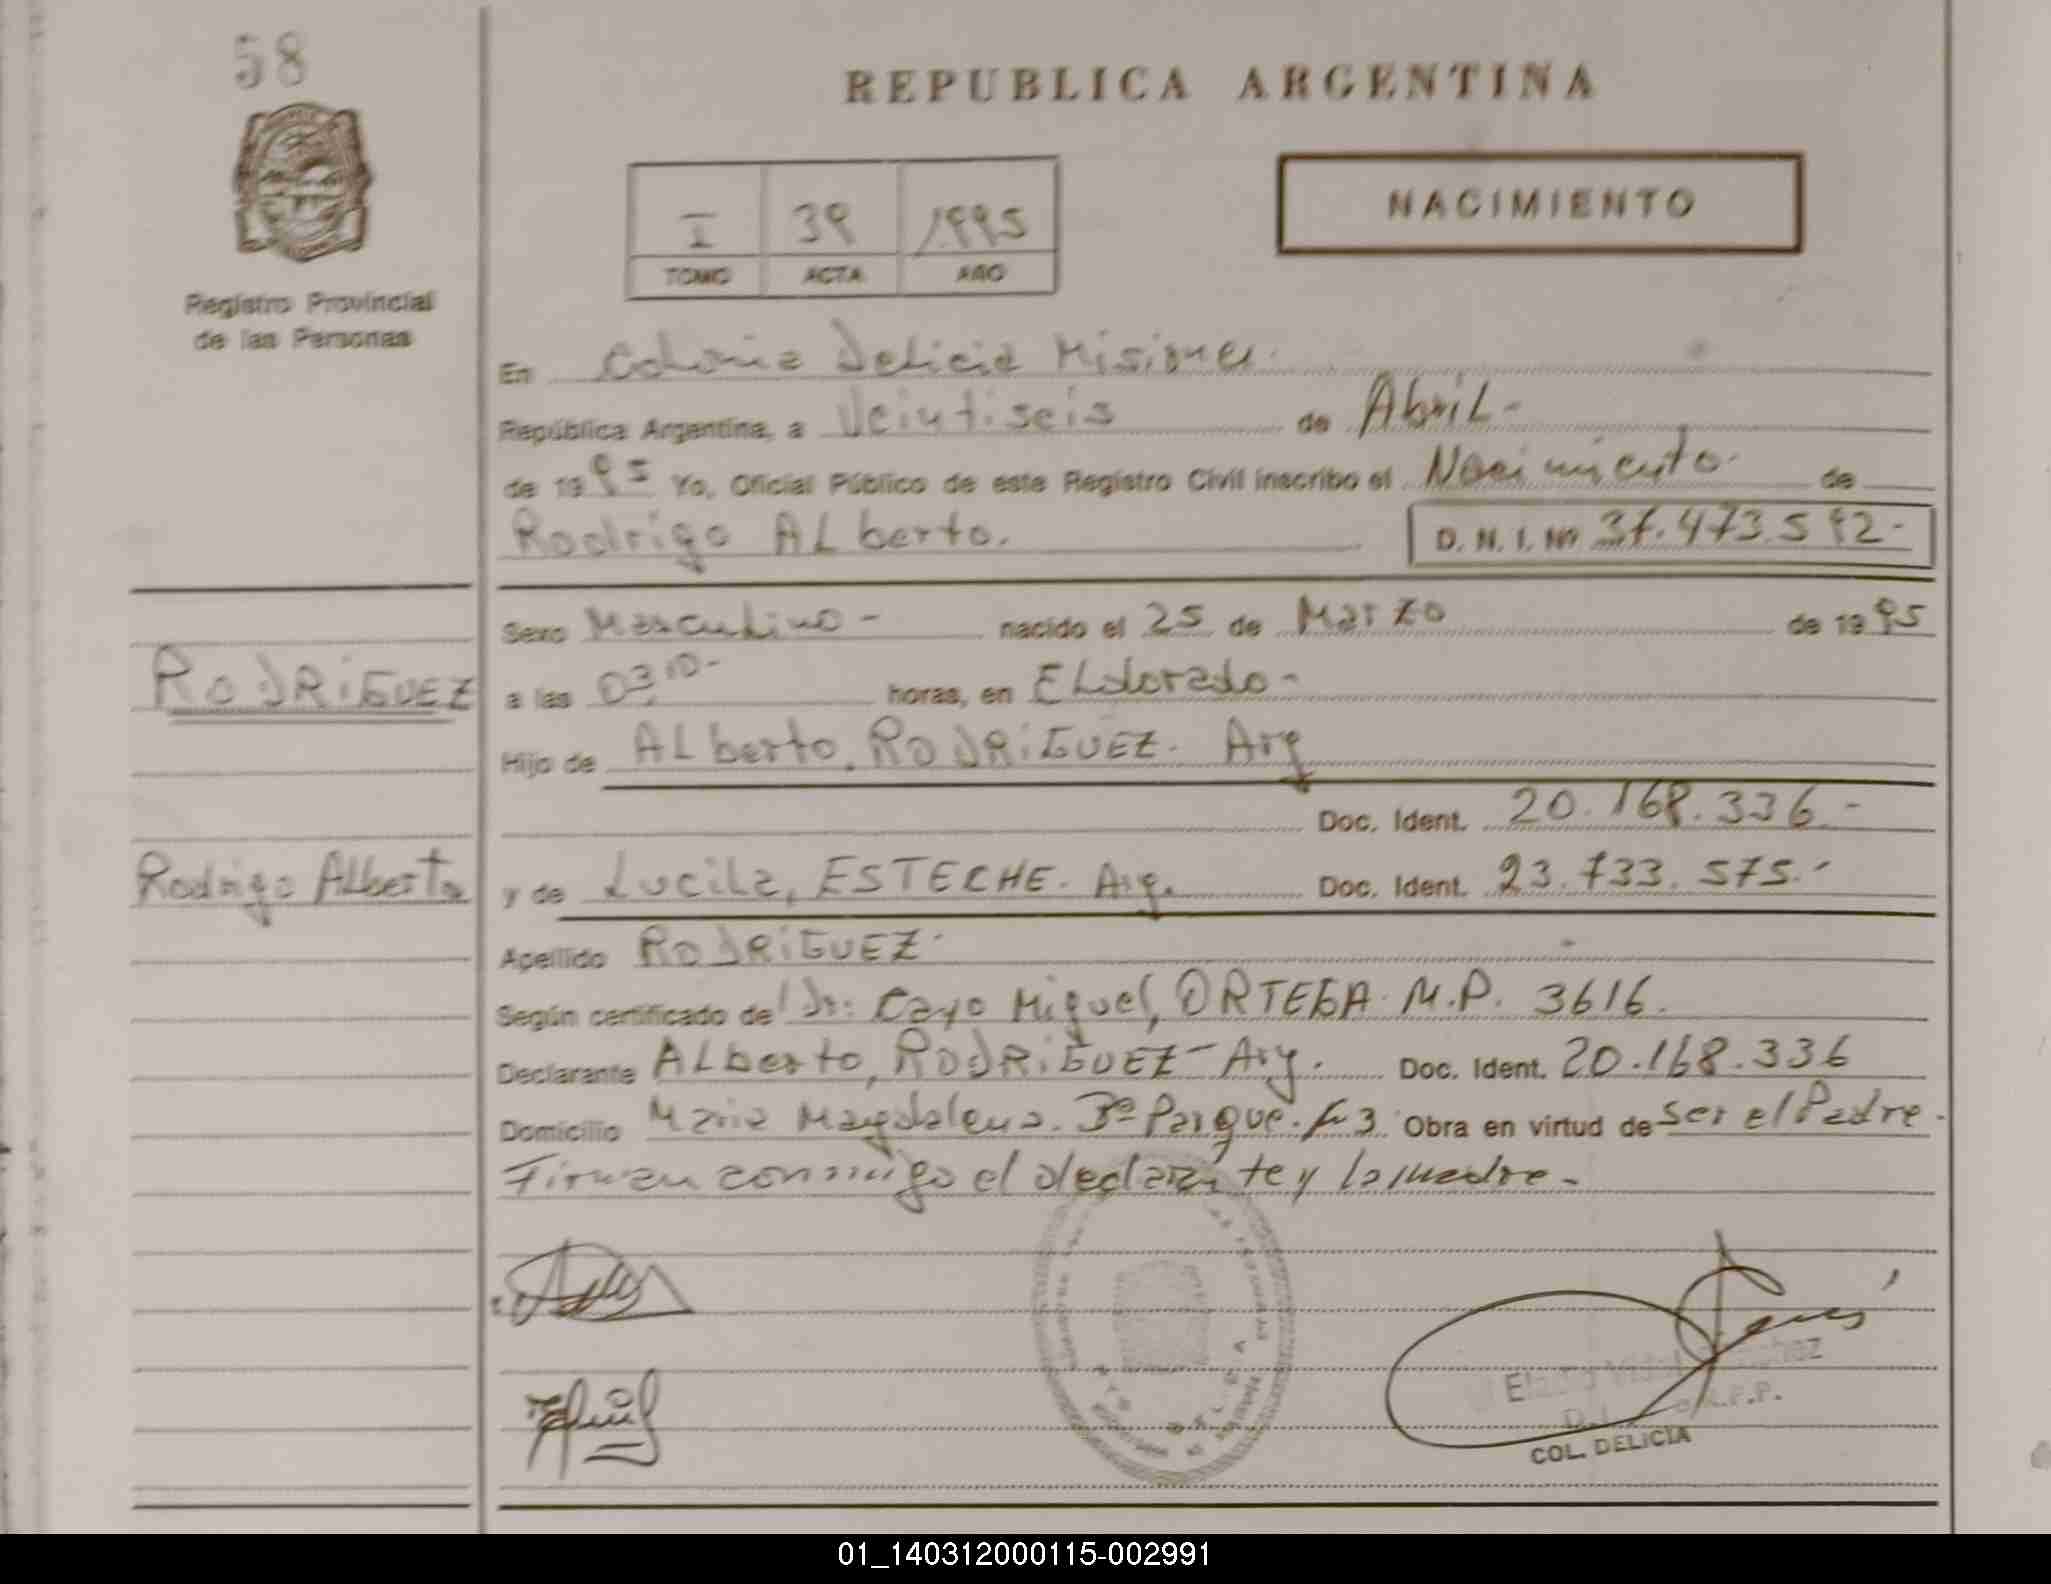 58
REPUBLICA ARGENTINA
NACIMIENTO
I 39 1995
TOMO ACTA AÑO
Registro Provincial
de las Personas
En Colonia Delicia Misiones.
República Argentina, a Veintiseis de Abril-
de 1995 Yo, Oficial Público de este Registro Civil inscribo el Nacimiento de
Rodrigo ALberto. D. N. I. Nº 37.473.592-
Sexo Masculino - nacido el 25 de Marzo de 1995
RODRIGUEZ
a las 03 10- horas, en ELdorado-
Hijo de ALberto, RODRIGUEZ. Arg
Doc. Ident. 20.168.336-
Rodrigo ALberto
y de Lucila, ESTECHE. Arg. Doc. Ident. 23.733.575.-
Apellido RODRIGUEZ.
Según certificado de Dr: Cayo Miguel, ORTEGA. M.P. 3616.
Declarante ALberto, RODRIGUEZ- Arg. Doc. Ident. 20.168.336
Domicilio Maria Magdalena. Bº Parque. 3 Obra en virtud de ser el Padre.
Firman conmigo el declarante y la madre-
COL. DELICIA
01_140312000115-002991